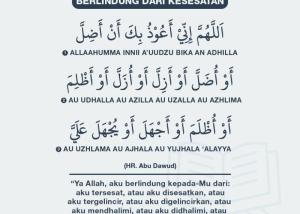 BERLINDUNG DARI KESESATAN
اَللّٰهُمَّ إِنِّيْ أَعُوْذُ بِكَ أَنْ أَضِلَّ
1 ALLAAHUMMA INNII A'UUDZU BIKA AN ADHILLA
أَوْ أُضَلَّ أَوْ أَزِلَّ أَوْ أُزَلَّ أَوْ أَظْلِمَ
2 AU UDHALLA AU AZILLA AU UZALLA AU AZHLIMA
أَوْ أُظْلَمَ أَوْ أَجْهَلَ أَوْ يُجْهَلَ عَلَيَّ
3 AU UZHLAMA AU AJHALA AU YUJHALA 'ALAYYA
(HR. Abu Dawud)
"Ya Allah, aku berlindung kepada-Mu dari:
aku tersesat, atau aku disesatkan, atau
aku tergelincir, atau aku digelincirkan, atau
aku mendhalimi, atau aku didhalimi, atau